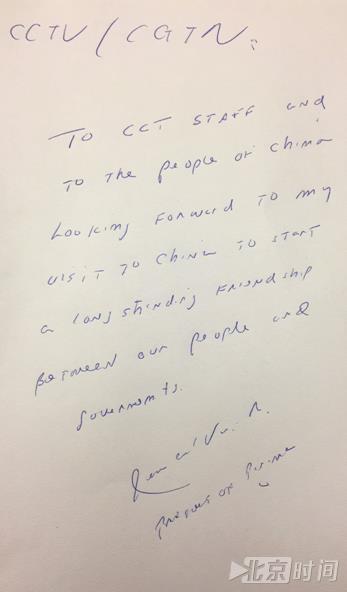 CCTV / CGTN:
TO CCT STAFF and
TO The people of China
Looking Forward TO my
visit TO China TO start
a long standing Friendship
Between our people and
Governments.
of
北京时间